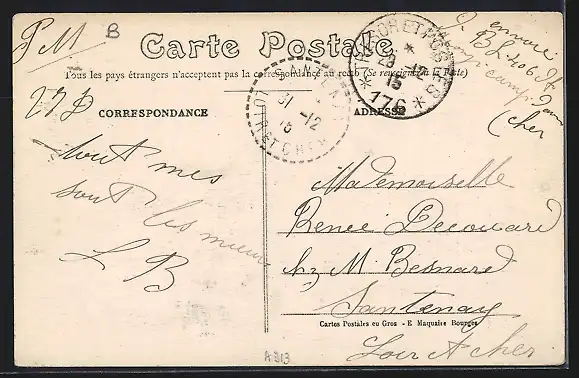 FM
B
Carte Postale
Tous les pays étrangers n'acceptent pas la correspondance au recto (Se renseigner à la Poste)
CORRESPONDANCE
ADRESSE
TRESOR ET POSTES
*
29 -12
15
* 176 *
SANTENAY
31 -12
15
LOIR ET CHER
Cher
tout mes
sont les mieux
L B
Mademoiselle
Renée Decouard
chez M. Besnard
Santenay
Cartes Postales en Gros - E Maquaire Bourges
Loir et Cher
A 313